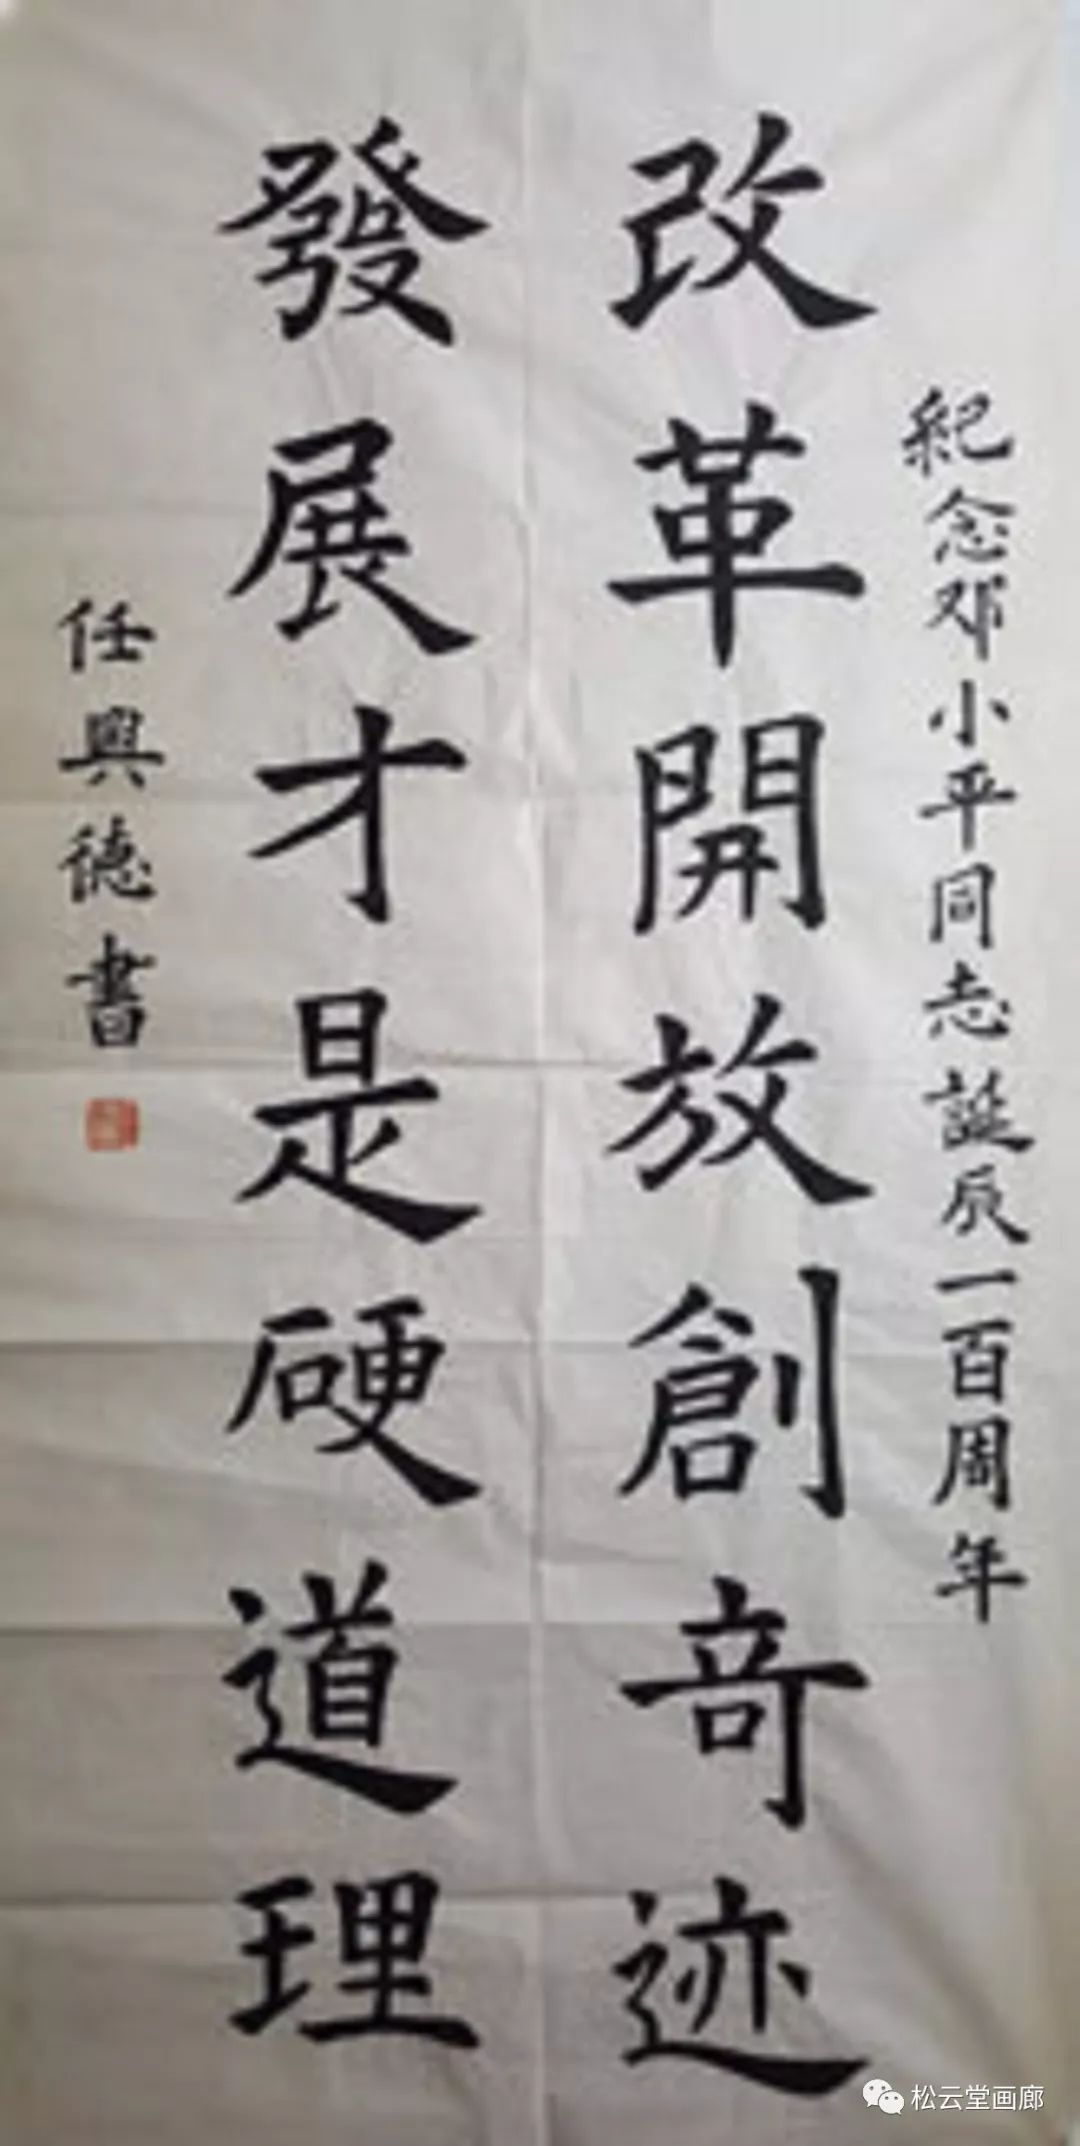 紀念邓小平同志誕辰一百周年
改革開放創奇迹
發展才是硬道理
任興德書
松云堂画廊